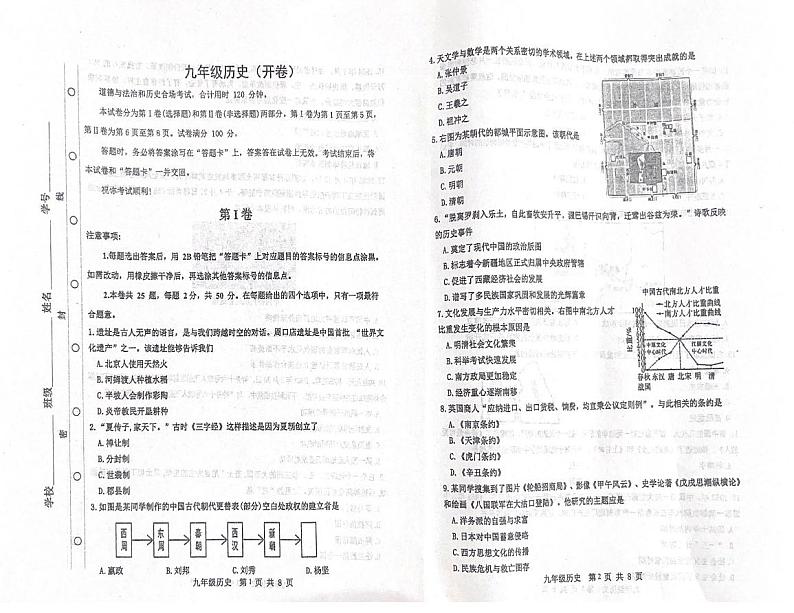 九年级历史（开卷）
道德与法治和历史合场考试，合计用时 120 分钟。
本试卷分为第Ⅰ卷(选择题)和第Ⅱ卷(非选择题)两部分，第Ⅰ卷为第1页至第5页，
第Ⅱ卷为第6页至第8页。试卷满分 100 分。
答题时，务必将答案涂写在“答题卡”上，答案答在试卷上无效。考试结束后，将
本试卷和“答题卡”一并交回。
祝你考试顺利！
第Ⅰ卷
注意事项：
1.每题选出答案后，用 2B 铅笔把“答题卡”上对应题目的答案标号的信息点涂黑。
如需改动，用橡皮擦干净后，再选涂其他答案标号的信息点。
2.本卷共 25 题，每题 2 分，共 50 分。在每题给出的四个选项中，只有一项最符
合题意。
1.遗址是古人无声的语言，是与我们跨越时空的对话。周口店遗址是中国首批“世界文
化遗产”之一。该遗址能够告诉我们
A.北京人使用天然火
B.河姆渡人种植水稻
C.半坡人会制作彩陶
D.炎帝教民开垦耕种
2.“夏传子，家天下。”古时《三字经》这样描述是因为夏朝创立了
A.禅让制
B.分封制
C.世袭制
D.郡县制
3.如图是某同学制作的中国古代朝代更替表(部分)空白处政权的建立者是
西周
东周
秦朝
西汉
新朝
A.嬴政 B.刘邦 C.刘秀 D.杨坚
九年级历史 第 1 页 共 8 页
学校
班级
姓名
学号
密
封
线
4.天文学与数学是两个关系密切的学术领域，在上述两个领域都取得突出成就的是
A.张仲景
B.吴道子
C.王羲之
D.祖冲之
5.右图为某朝代的都城平面示意图，该朝代是
A.唐朝
B.元朝
C.明朝
D.清朝
6.“脱离罗刹入乐土，自此畜牧安升平，
诗歌反映
的历史事件
A.奠定了现代中国的政治版图
B.标志着今新疆地区正式归属中央政府管辖
C.促进了西藏经济社会的发展
D.谱写了多民族国家巩固和发展的光辉篇章
7.文化发展与生产力水平密切相关。右图中南北方人才
比重发生变化的根本原因是
A.明清社会文化繁荣
B.科举考试快速发展
C.南方政局更加稳定
D.经济重心逐渐南移
中国古代南北方人才比重
北方人才比重曲线
南方人才比重曲线
比重/%
中原文化中心时代
江浙文化中心时代
春秋战国 东汉 唐 北宋 明 清
8.英国商人“应纳进口、出口货税、饷费，均宜秉公议定则例”。与此相关的条约是
A.《南京条约》
B.《天津条约》
C.《虎门条约》
D.《辛丑条约》
9.某同学搜集到了图片《轮船招商局》、影像《甲午风云》、史学论著《戊戌思潮纵横论》
和绘画《八国联军在大沽口登陆》。他研究的主题应是
A.洋务派的自强与求富
B.日本对中国蓄意侵略
C.西方思想文化的传播
D.民族危机与救亡图存
九年级历史 第 2 页 共 8 页